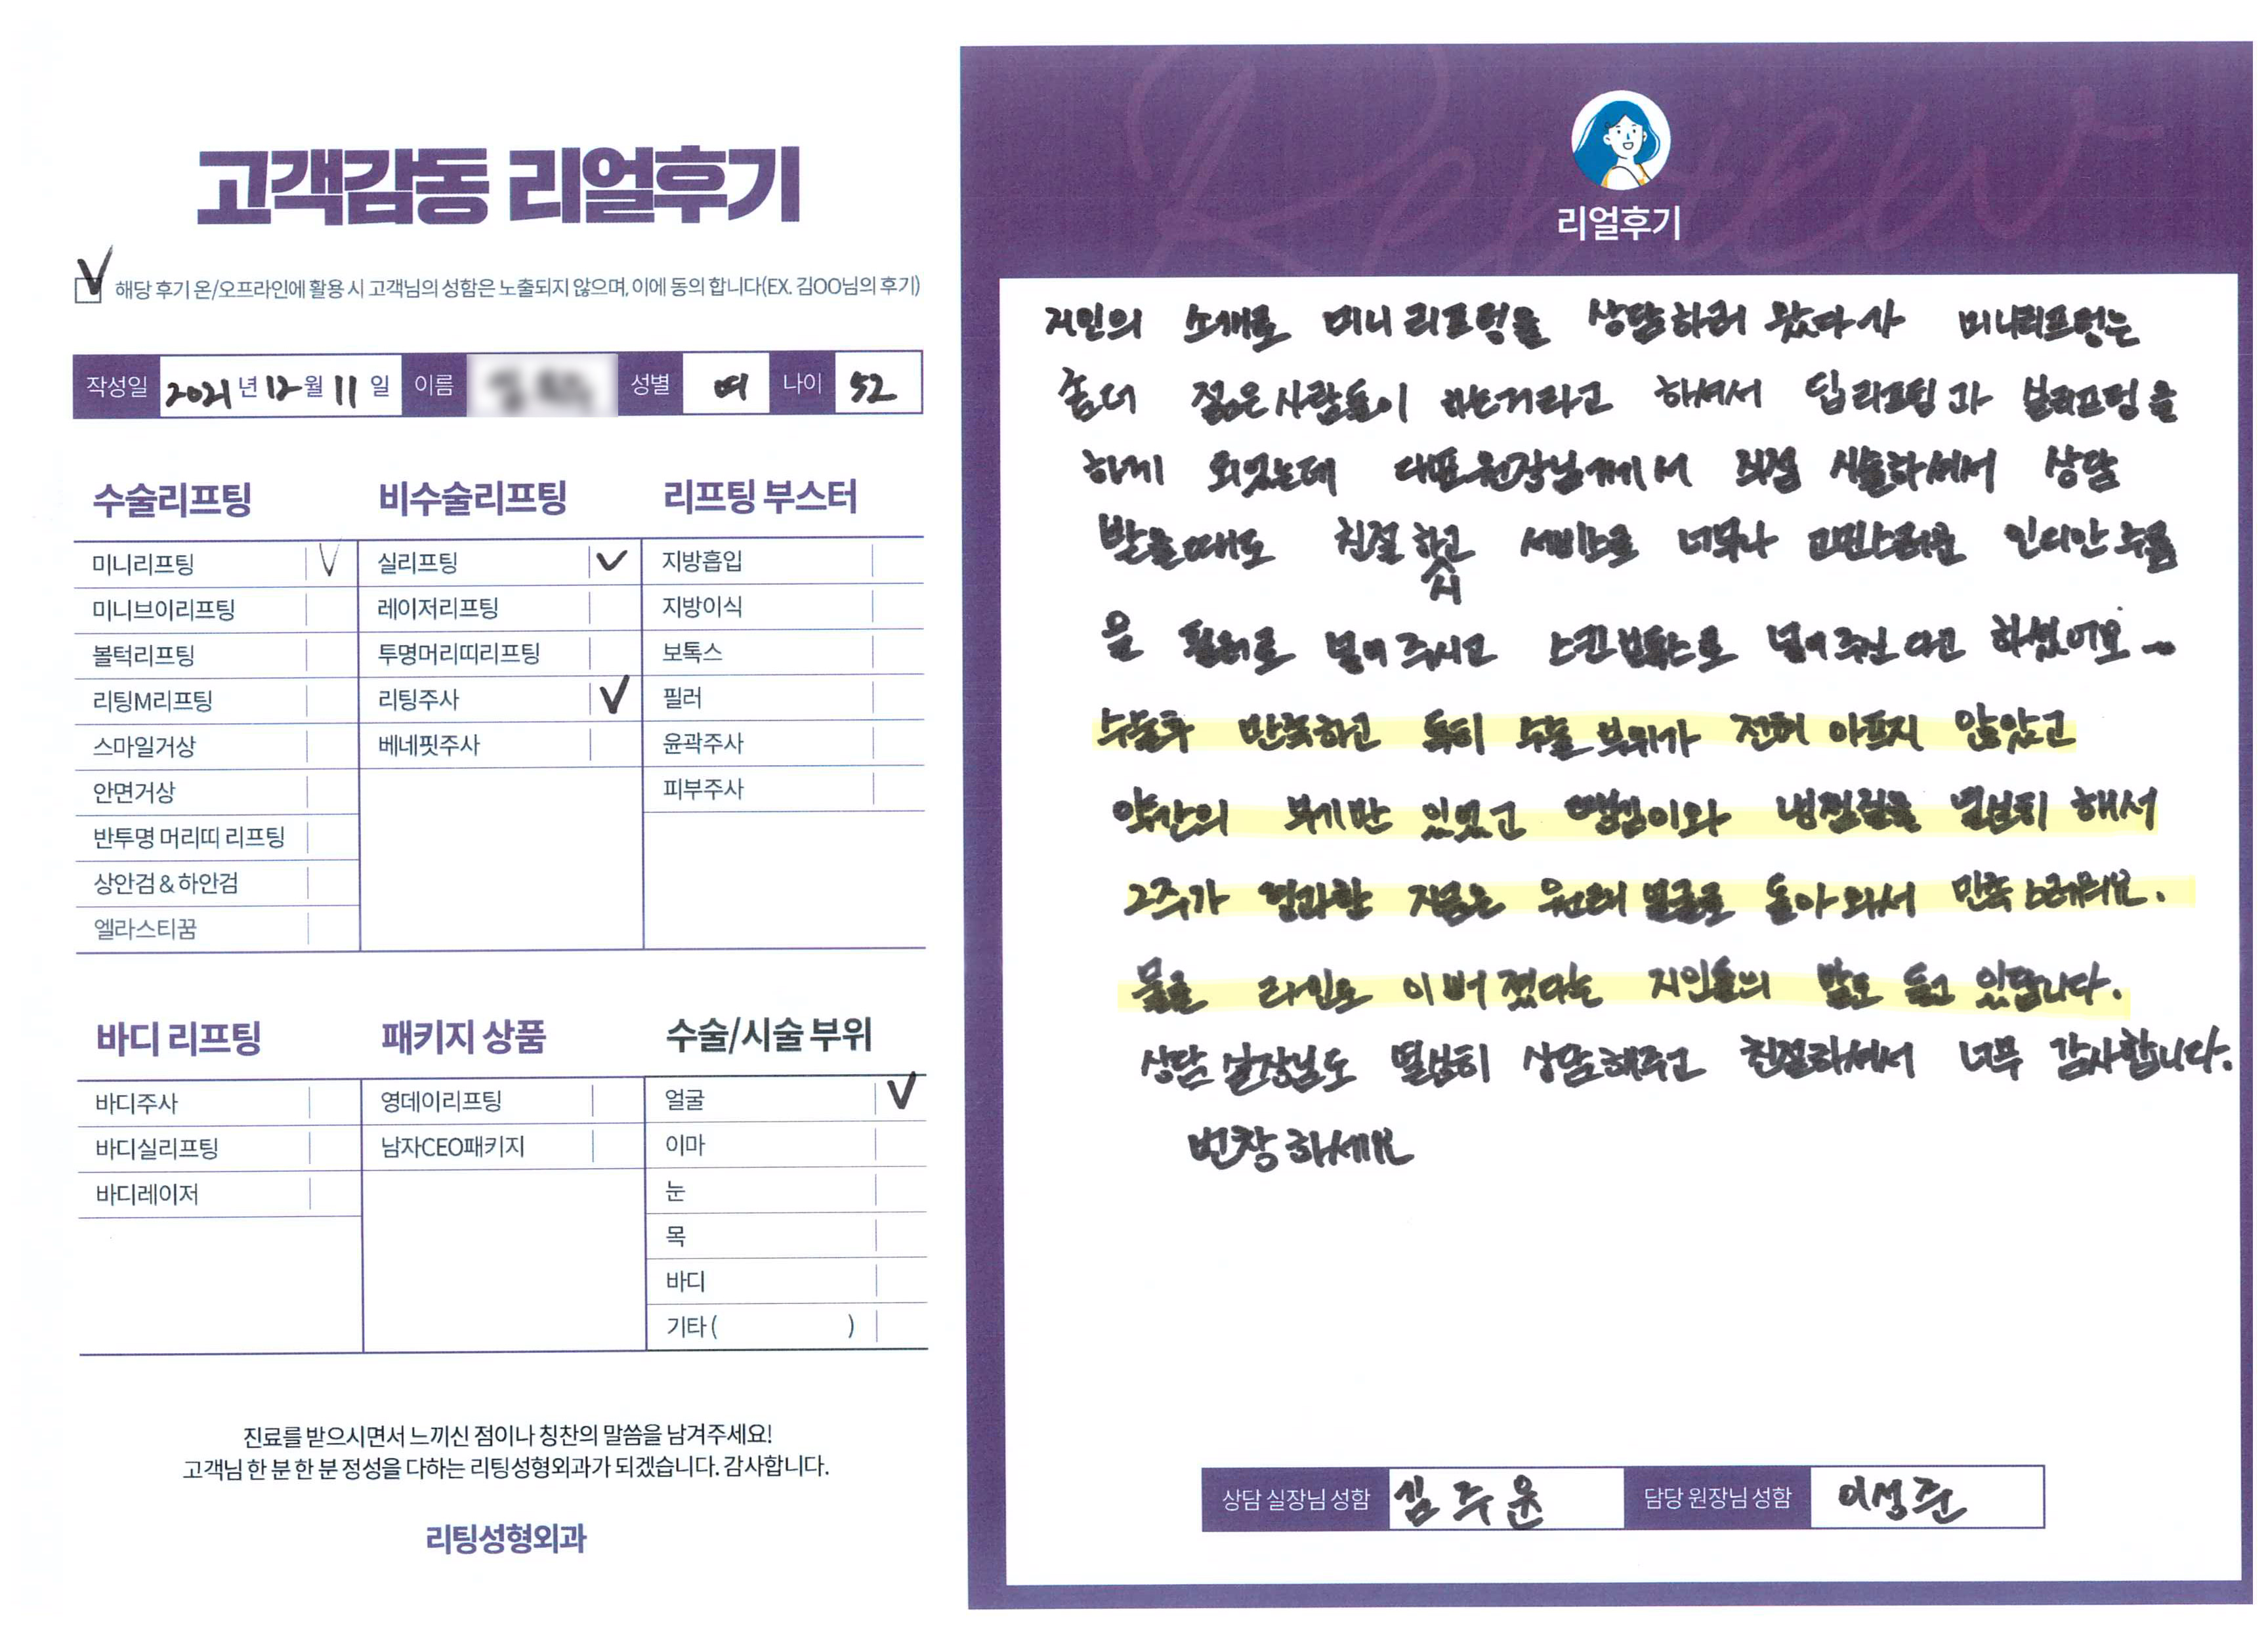 고객감동 리얼후기
해당 후기 온/오프라인에 활용 시 고객님의 성함은 노출되지 않으며, 이에 동의 합니다(EX. 김OO님의 후기)
작성일 2021년 12월 11일 이름 성별 여 나이 52
수술리프팅
미니리프팅
미니브이리프팅
볼턱리프팅
리팅M리프팅
스마일거상
안면거상
반투명 머리띠 리프팅
상안검 & 하안검
엘라스티꿈
비수술리프팅
실리프팅
레이저리프팅
투명머리띠리프팅
리팅주사
베네핏주사
리프팅 부스터
지방흡입
지방이식
보톡스
필러
윤곽주사
피부주사
바디 리프팅
바디주사
바디실리프팅
바디레이저
패키지 상품
영데이리프팅
남자CEO패키지
수술/시술 부위
얼굴
이마
눈
목
바디
기타 ( )
진료를 받으시면서 느끼신 점이나 칭찬의 말씀을 남겨주세요!
고객님 한 분 한 분 정성을 다하는 리팅성형외과가 되겠습니다. 감사합니다.
리팅성형외과
Review
리얼후기
지인의 소개로 미니리프팅을 상담하러 왔다가 미니리프팅는
좀더 젊은사람들이 하는거라고 하셔서 딥리프팅과 실리프팅을
하게 되었는데 대표원장님께서 직접 시술하셔서 상담
받을때도 친절하시고 서비스로 너무나 고민스러운 인디안주름
을 필러로 넣어주시고 스킨보톡스로 넣어주신다고 하셨어요~
수술후 만족하고 특히 수술 부위가 전혀 아프지 않았고
약간의 붓기만 있었고 땡김이와 냉찜질을 열심히 해서
2주가 경과한 지금은 원래 얼굴로 돌아 와서 만족스러워요.
물론 라인도 이뻐졌다는 지인들의 말도 듣고 있답니다.
상담 실장님도 열심히 상담해주고 친절하셔서 너무 감사합니다.
번창하세요
상담 실장님 성함 김주윤 담당 원장님 성함 이성준